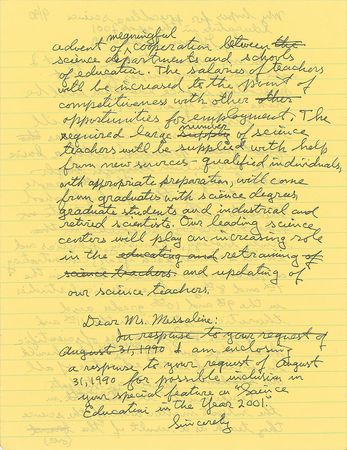 meaningful
advent of cooperation between the
science departments and schools
of education. The salaries of teachers
will be increased to the point of
competitiveness with other other
opportunities for employment. The
required large supply number of science
teachers will be supplied with help
from new sources - qualified individuals,
with appropriate preparation, will come
from graduates with science degrees,
graduate students and industrial and
retired scientists. Our leading science
centers will play an increasing role
in the educating and retraining of
science teachers and updating of
our science teachers.
Dear Ms. Messaline:
In response to your request of
August 31, 1990 I am enclosing
a response to your request of August
31, 1990 for possible inclusion in
your special feature on "Science
Education in the Year 2001."
Sincerely